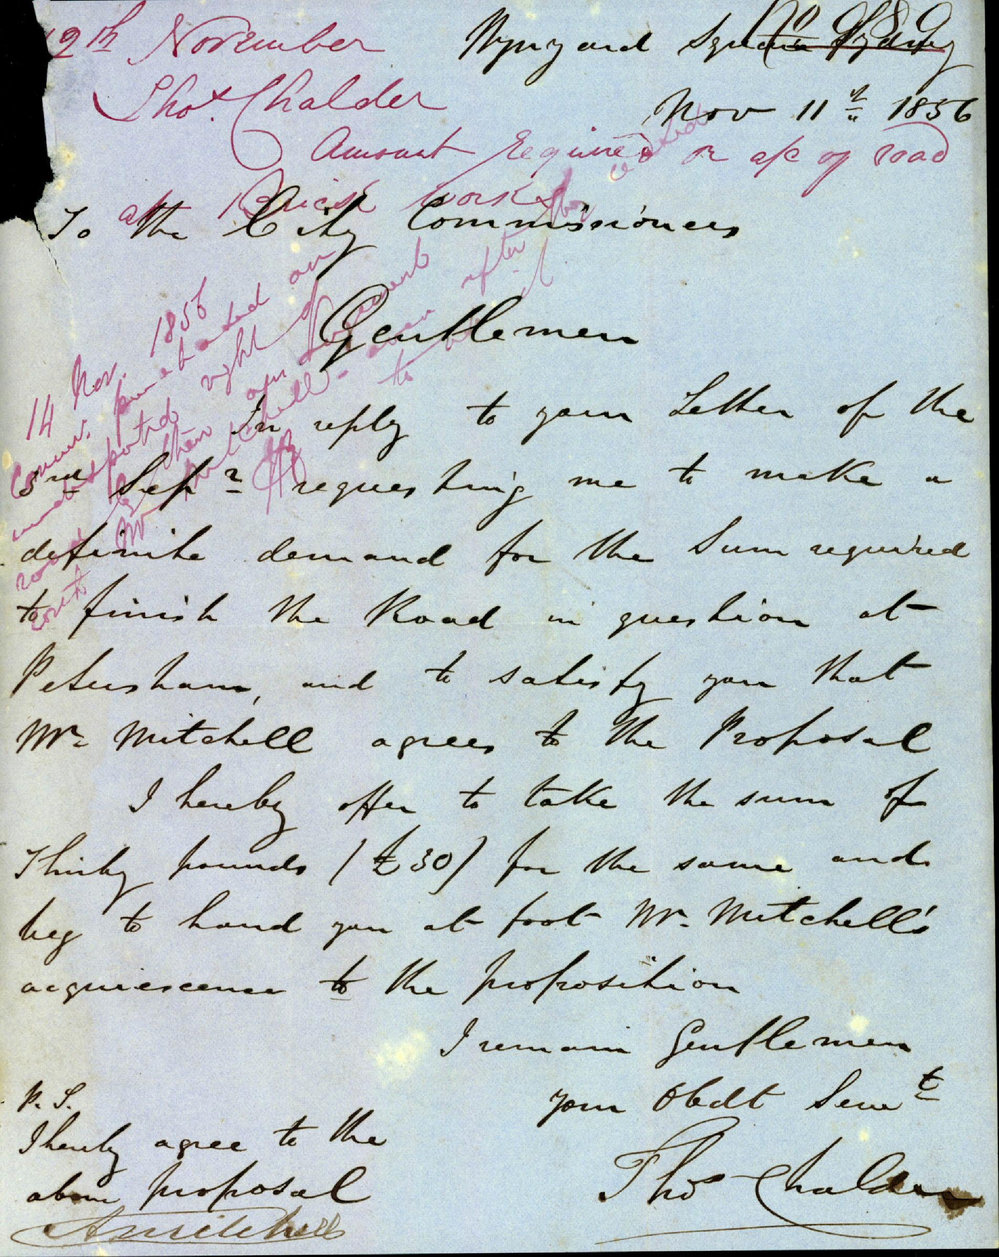 12th November
Thos. Chalder
Amount required on a/c of road
at Brick works
Wynyard Square Sydney
Nov 11th 1856
To the City Commissioners
Gentlemen
14 Nov. 1856
In reply to your Letter of the
3rd Sepr requesting me to make a
definite demand for the Sum required
to finish the Road in question at
Petersham, and to satisfy you that
Mr. Mitchell agrees to the Proposal
I hereby offer to take the sum of
Thirty pounds (£30) for the same and
beg to hand you at foot Mr. Mitchell's
acquiescence to the proposition
I remain Gentlemen
your Obedt Servt
Thos Chalder
P.S.
I hereby agree to the
above proposal
A Mitchell